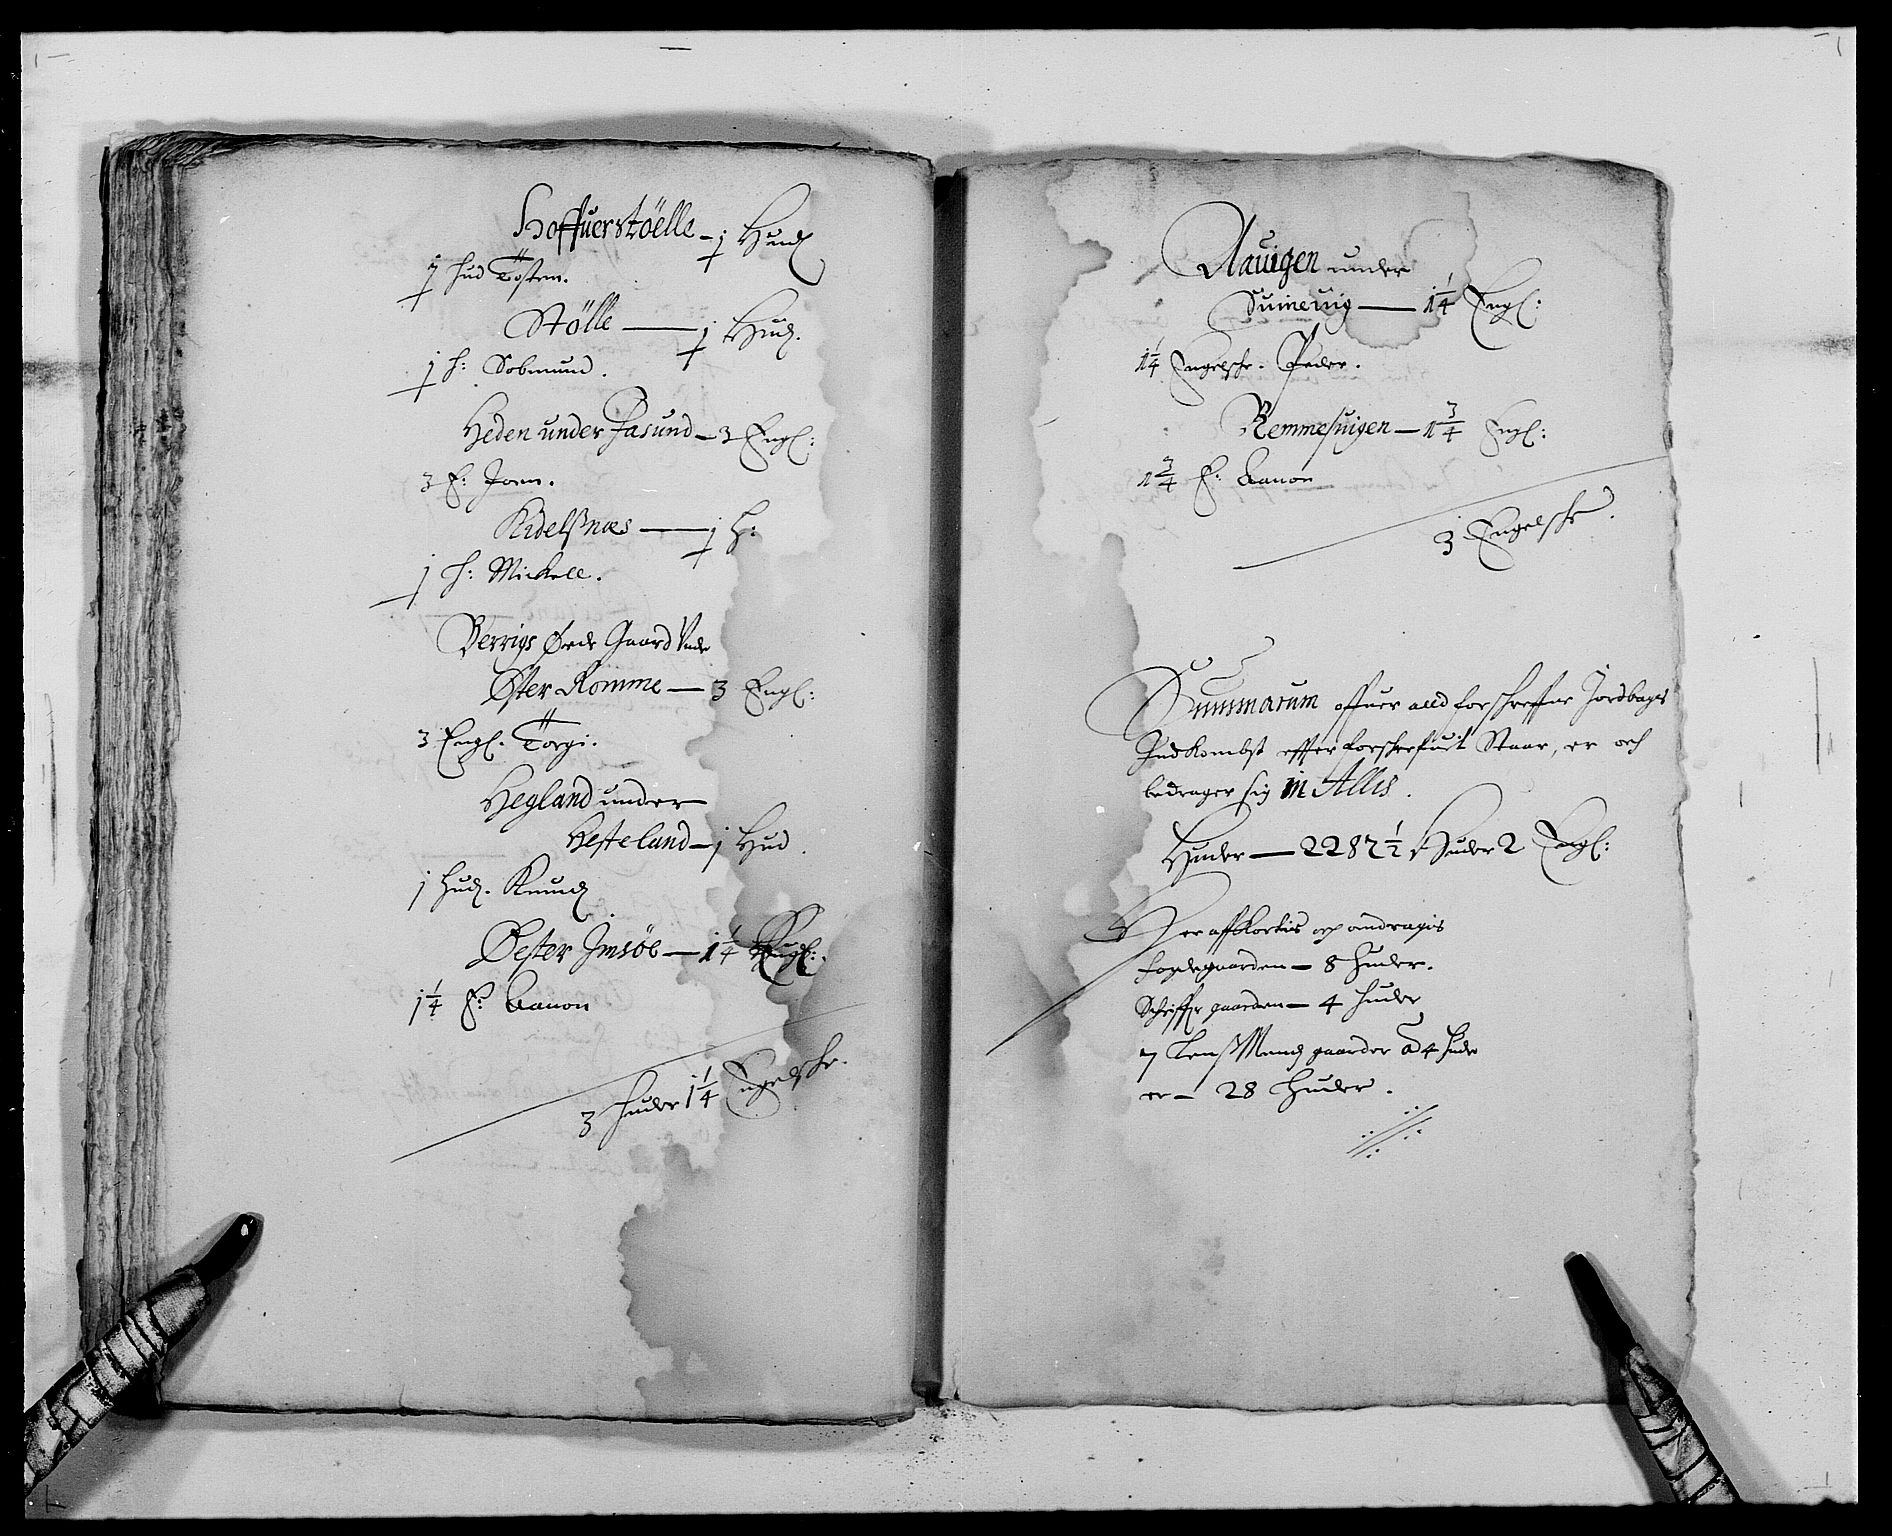 Hoffuerstöelle – 1 Hud
1 hud Tosten.
Stölle — 1 Hud.
1 h: Sobmund.
Heden under Fasund – 3 Engl:
3 E: Joen.
Kidelßnæs — 1 H:
1 h: Mickell.
Berrigs Øede Gaard Vnde
Øster Romme — 3 Engl:
3 Engl. Torgi.
Hegland under
Hesteland – 1 Hud.
1 Hud. Knud
Vester Imsöe — 1 1/4 Engl:
1 1/4 E: Aanon
3 huder 1 1/4 Engelske.
Aauigen under
Suineuig — 1 1/4 Engl:
1 1/4 Engelske. Peder.
Remmesuigen — 1 3/4 Engl:
1 3/4 E: Aanon
3 Engelske.
Summarum offuer alld forschreffne Jordbogs
Indkombst effter forschrefuit Staar, er och
bedrager sig in Allis.
Huder — 2287 1/2 Huder 2 Engl:
Her affkortis och andragis
fogdegaarden – 8 huder.
Schriffr gaarden – 4 huder
7 Lenßmend gaarder a 4 hude
er – 28 huder.